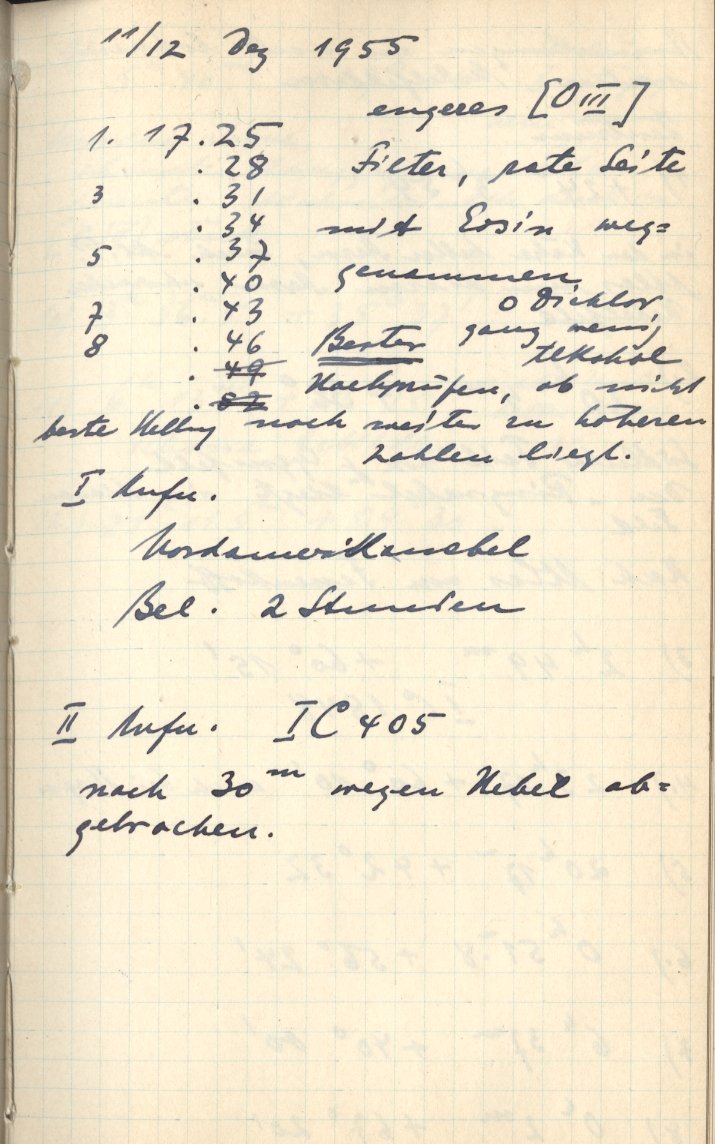 11/12 Dez 1955
engeres [O III]
1. 17.25
.28 Filter, rote Seite
3 .31
.34 mit Eosin weg=
5 .37
.40 genommen
7 .43 o Dichlor
8 .46 Bester ganz wenig
.49 Alkohol
.52 Nachprüfen, ob nicht
beste Stellung noch weiter zu höheren
Zahlen liegt.
I Aufn.
Nordamerikanebel
Bel. 2 Stunden
II Aufn. IC 405
nach 30 m wegen Nebel ab=
gebrochen.